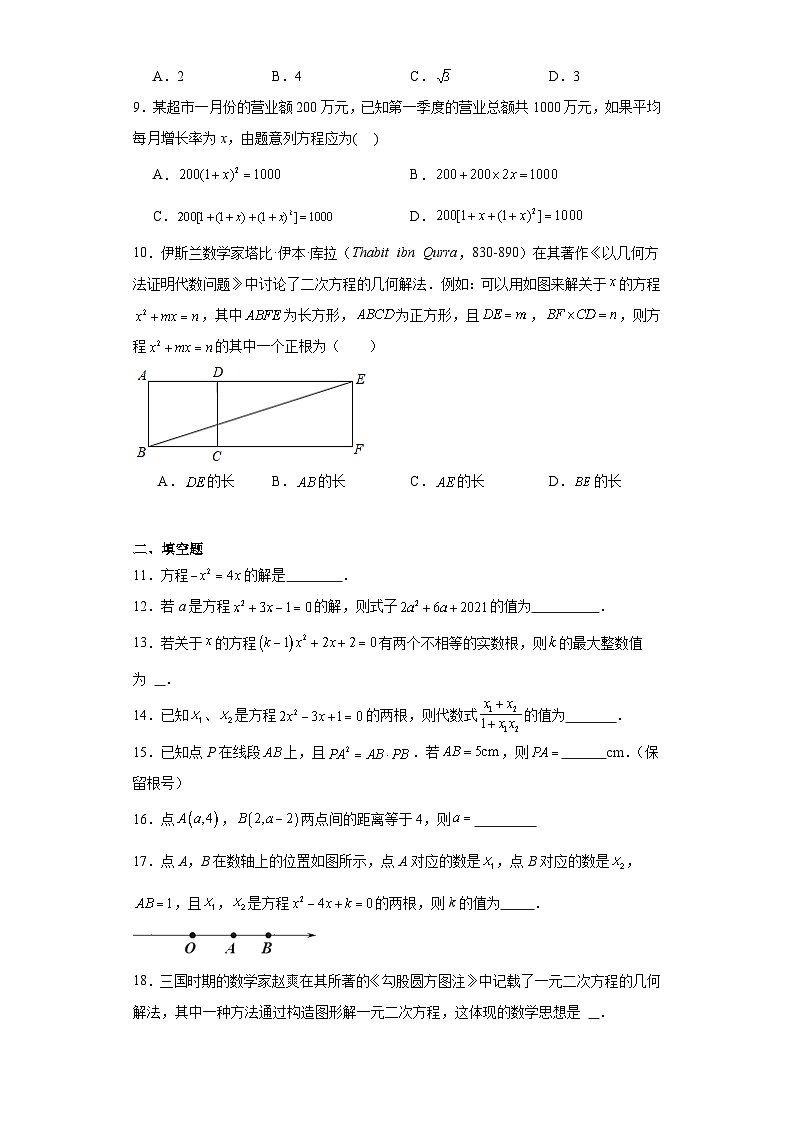 A．2 B．4 C．√3 D．3
9．某超市一月份的营业额200万元，已知第一季度的营业总额共1000万元，如果平均
每月增长率为x，由题意列方程应为( )
A．200(1+x)²=1000 B．200+200×2x=1000
C．200[1+(1+x)+(1+x)²]=1000 D．200[1+x+(1+x)²]=1000
10．伊斯兰数学家塔比·伊本·库拉（Thabit ibn Qurra，830-890）在其著作《以几何方
法证明代数问题》中讨论了二次方程的几何解法．例如：可以用如图来解关于x的方程
x²+mx=n，其中ABFE为长方形，ABCD为正方形，且DE=m，BF×CD=n，则方
程x²+mx=n的其中一个正根为（ ）
A D E
B C F
A．DE的长 B．AB的长 C．AE的长 D．BE的长
二、填空题
11．方程-x²=4x的解是_______．
12．若a是方程x²+3x-1=0的解，则式子2a²+6a+2021的值为_________．
13．若关于x的方程(k-1)x²+2x+2=0有两个不相等的实数根，则k的最大整数值
为 _．
14．已知x₁、x₂是方程2x²-3x+1=0的两根，则代数式(x₁+x₂)/(1+x₁x₂)的值为_______．
15．已知点P在线段AB上，且PA²=AB·PB．若AB=5cm，则PA=______cm．（保
留根号）
16．点A(a,4)，B(2,a-2)两点间的距离等于4，则a=_________
17．点A，B在数轴上的位置如图所示，点A对应的数是x₁，点B对应的数是x₂，
AB=1，且x₁，x₂是方程x²-4x+k=0的两根，则k的值为_____．
O A B
18．三国时期的数学家赵爽在其所著的《勾股圆方图注》中记载了一元二次方程的几何
解法，其中一种方法通过构造图形解一元二次方程，这体现的数学思想是 _．